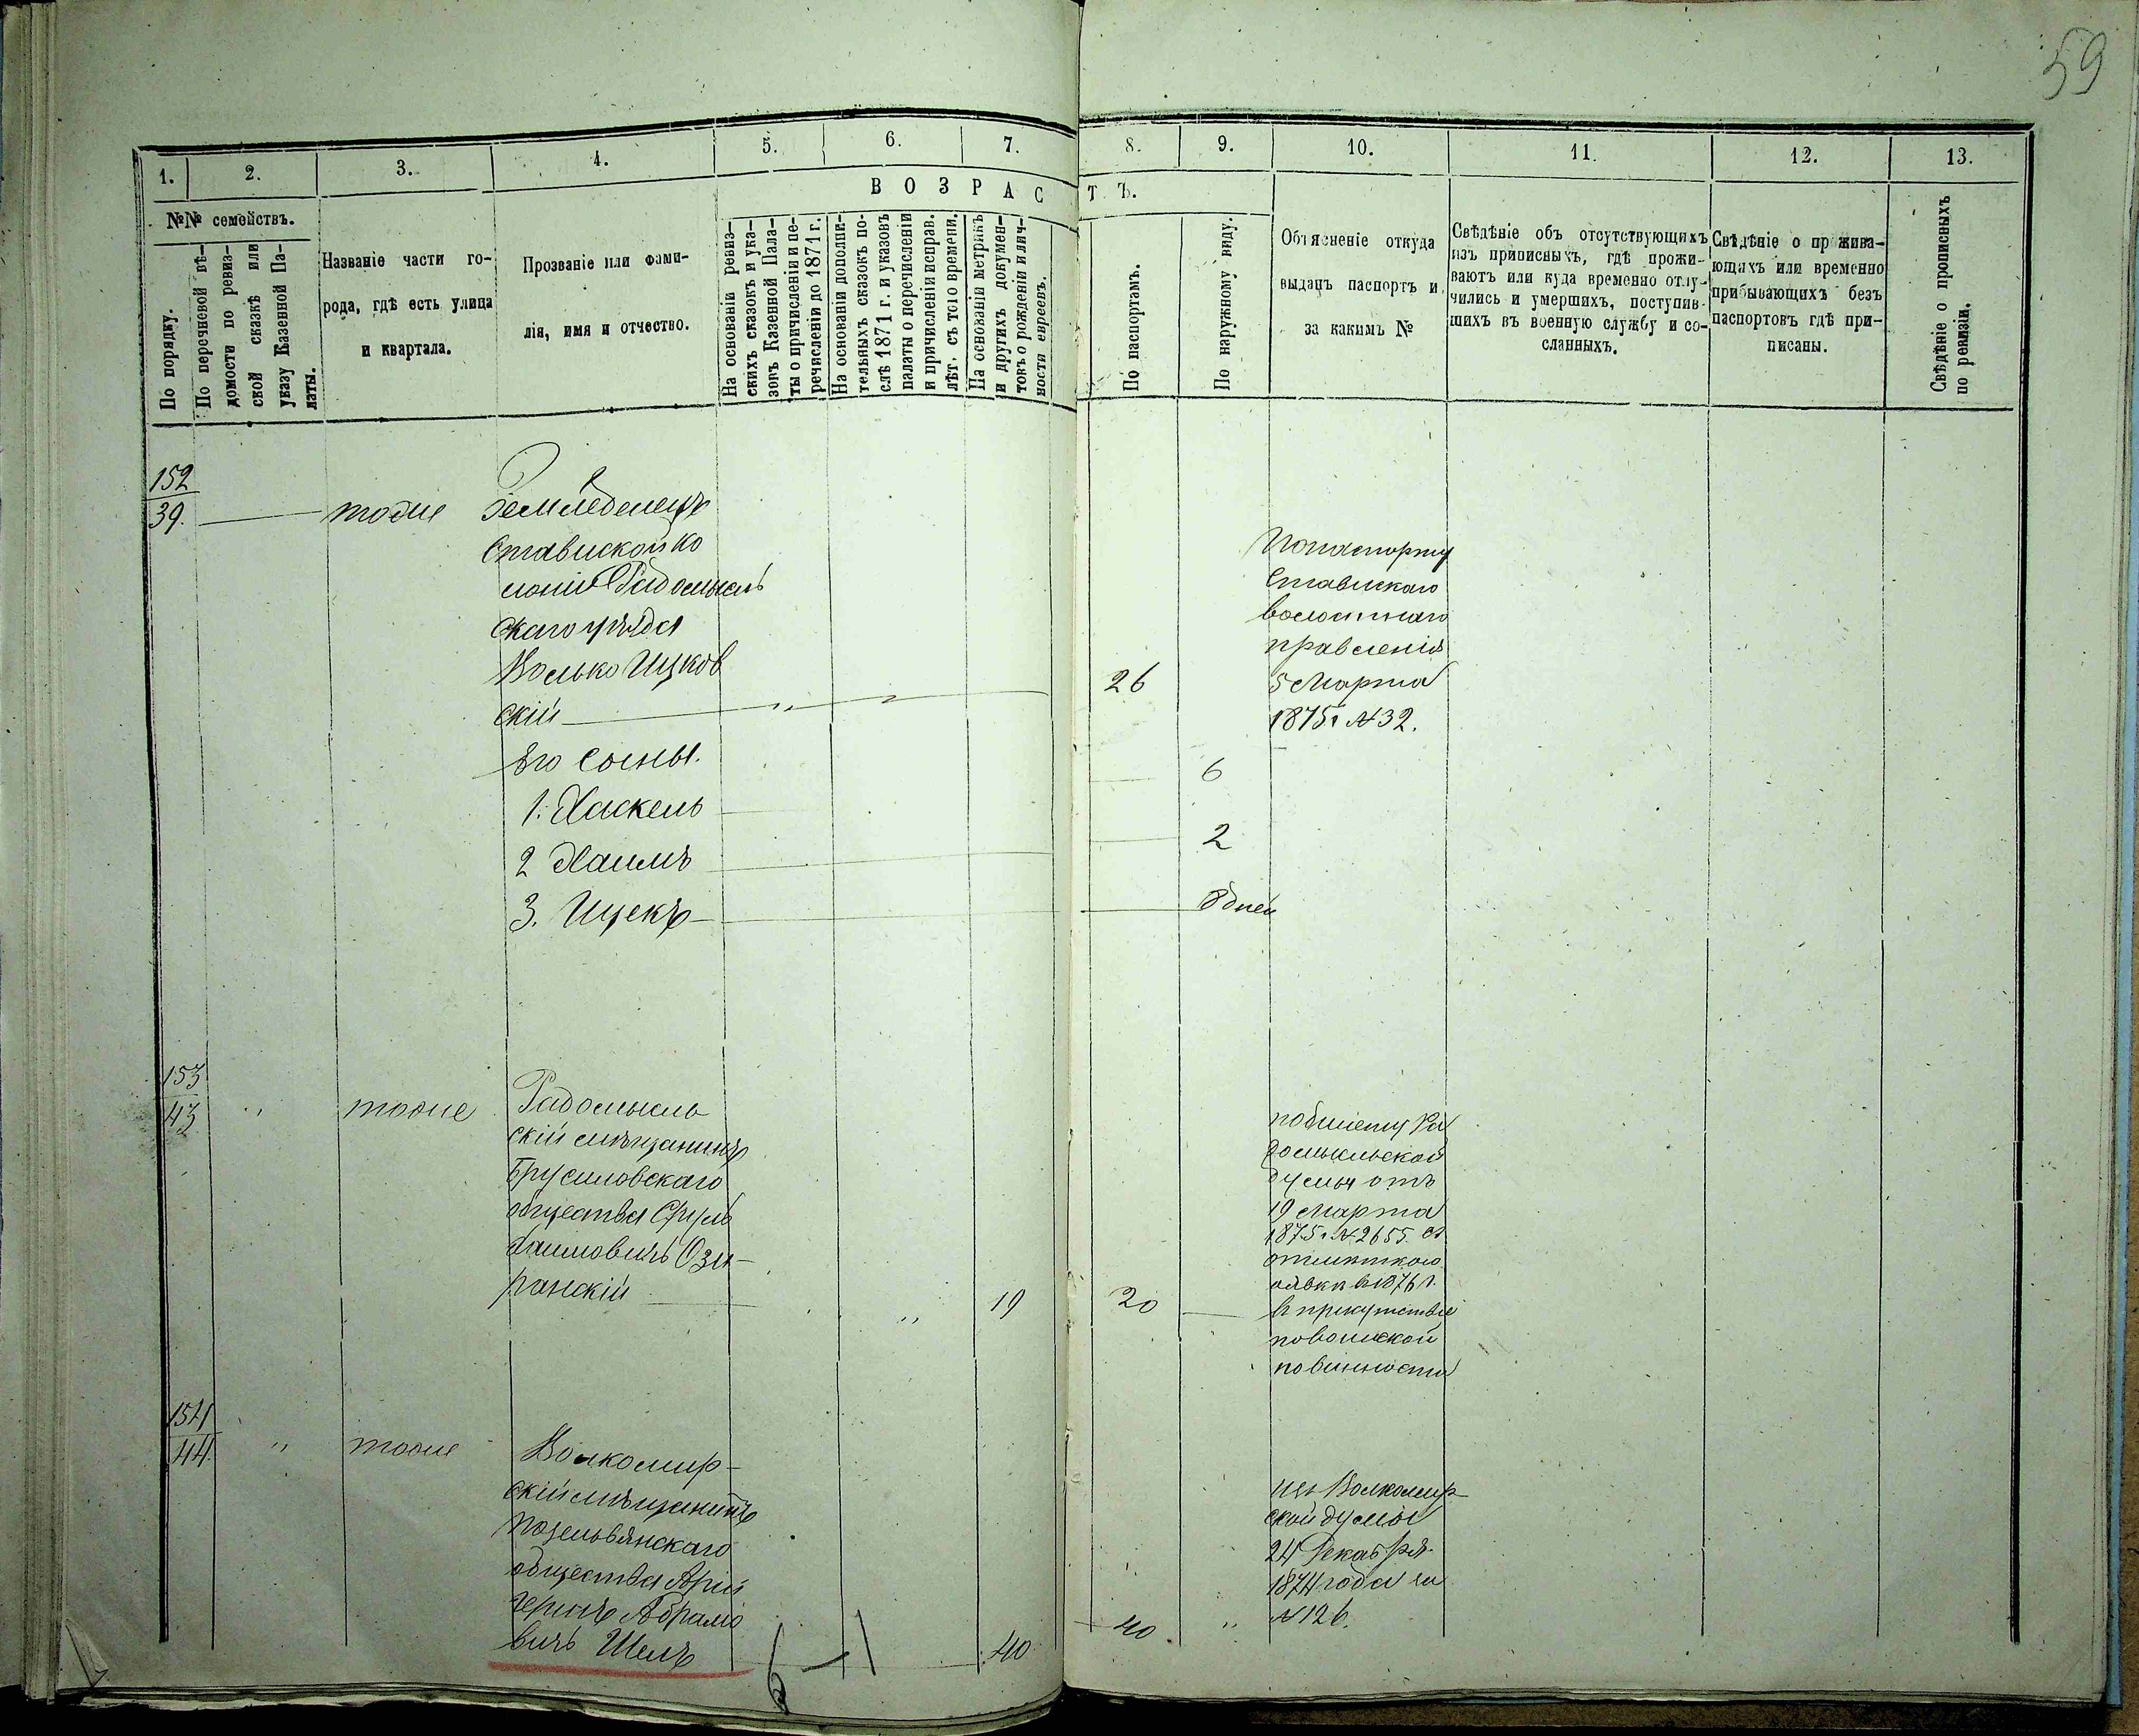 59
1. 2. 3. 4. 5. 6. 7. 8. 9. 10. 11. 12. 13.
ВОЗРАСТЪ.
№№ семействъ.
По порядку.
По перечневой вѣ-
домости по ревиз-
ской сказкѣ или
указу Казенной Па-
латы.
Названіе части го-
рода, гдѣ есть улица
и квартала.
Прозваніе или фами-
лія, имя и отчество.
На основаніи ревиз-
скихъ сказокъ и ука-
зовъ Казенной Пала-
ты о причисленіи и пе-
речисленіи до 1871 г.
На основаніи дополни-
тельныхъ сказокъ по-
слѣ 1871 г. и указовъ
палаты о перечисленіи
и причисленіи исправ.
лѣт. съ того времени.
На основаніи метрикъ
и другихъ докумен-
товъ о рожденіи и лич-
ности евреевъ.
По паспортамъ.
По наружному виду.
Объясненіе откуда
выданъ паспортъ и
за какимъ №
Свѣдѣніе объ отсутствующихъ
изъ приписныхъ, гдѣ прожи-
ваютъ или куда временно отлу-
чились и умершихъ, поступив-
шихъ въ военную службу и со-
сланныхъ.
Свѣдѣніе о прожива-
ющихъ или временно
прибывающихъ безъ
паспортовъ гдѣ при-
писаны.
Свѣдѣніе о прописныхъ
по ревизіи.
152
39. тоже Земледелецъ
Ставиской ко
лоніи Радомысль
скаго уѣзда
Волько Ицков
скій " "
26
По паспорту
Ставискаго
волостнаго
правленія
5 Марта
1875 г №32.
Его сыны.
1. Хаскель 6
2 Хаимъ 2
3. Ицекъ 8 дней
153
43 " тоже Радомысль
скій мѣщанинъ
Брусиловскаго
общества Сруль
Хаимовичъ Ози-
ранскій " 19
20
по билету Ра
домысльской
думы отъ
19 Марта
1875 г №2655. съ
въ 1876 г.
въ присутствіе
по воинской
повинности
154
44. " тоже Волкомир-
скій мѣщанинъ
Позельвянскаго
общества Арій
Герцъ Абрамо
вичъ Шелъ 40
40 "
изъ Волкомир
ской думы
24 Декабря
1874 года за
№126.